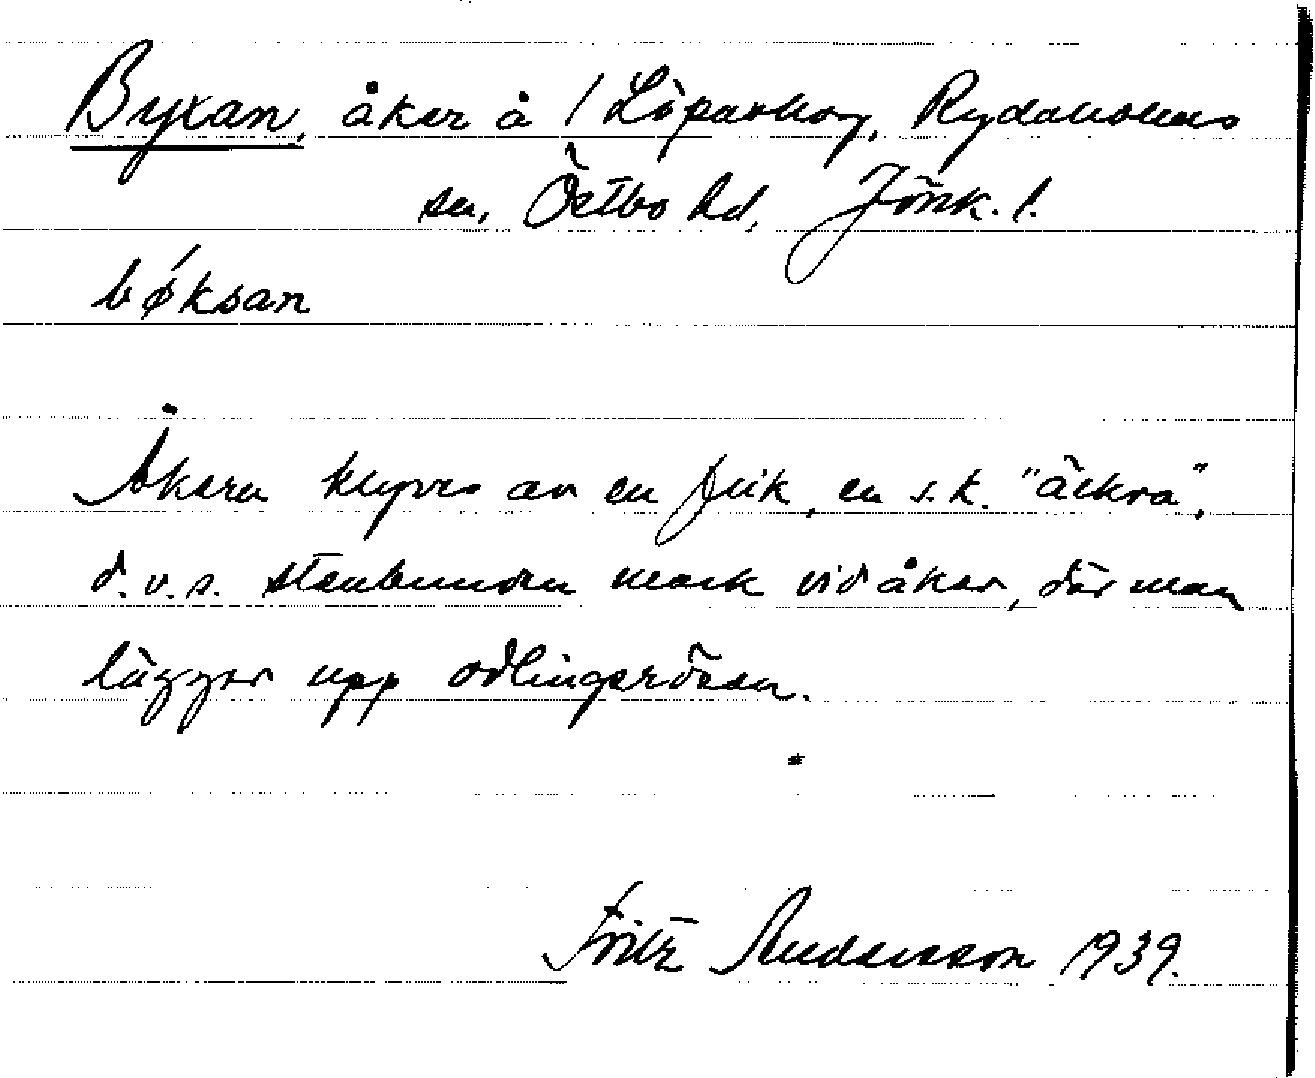 Byxan, åker å 1 Löparskog, Rydaholms
sn, Östbo hd, Jönk. l.
bǿksan
Åkern klyvs av en flik, en s.k. "äckra",
d.v.s. stenbunden mark vid åker, där man
lägger upp odlingsrösen.
Fritz Andersson 1939.